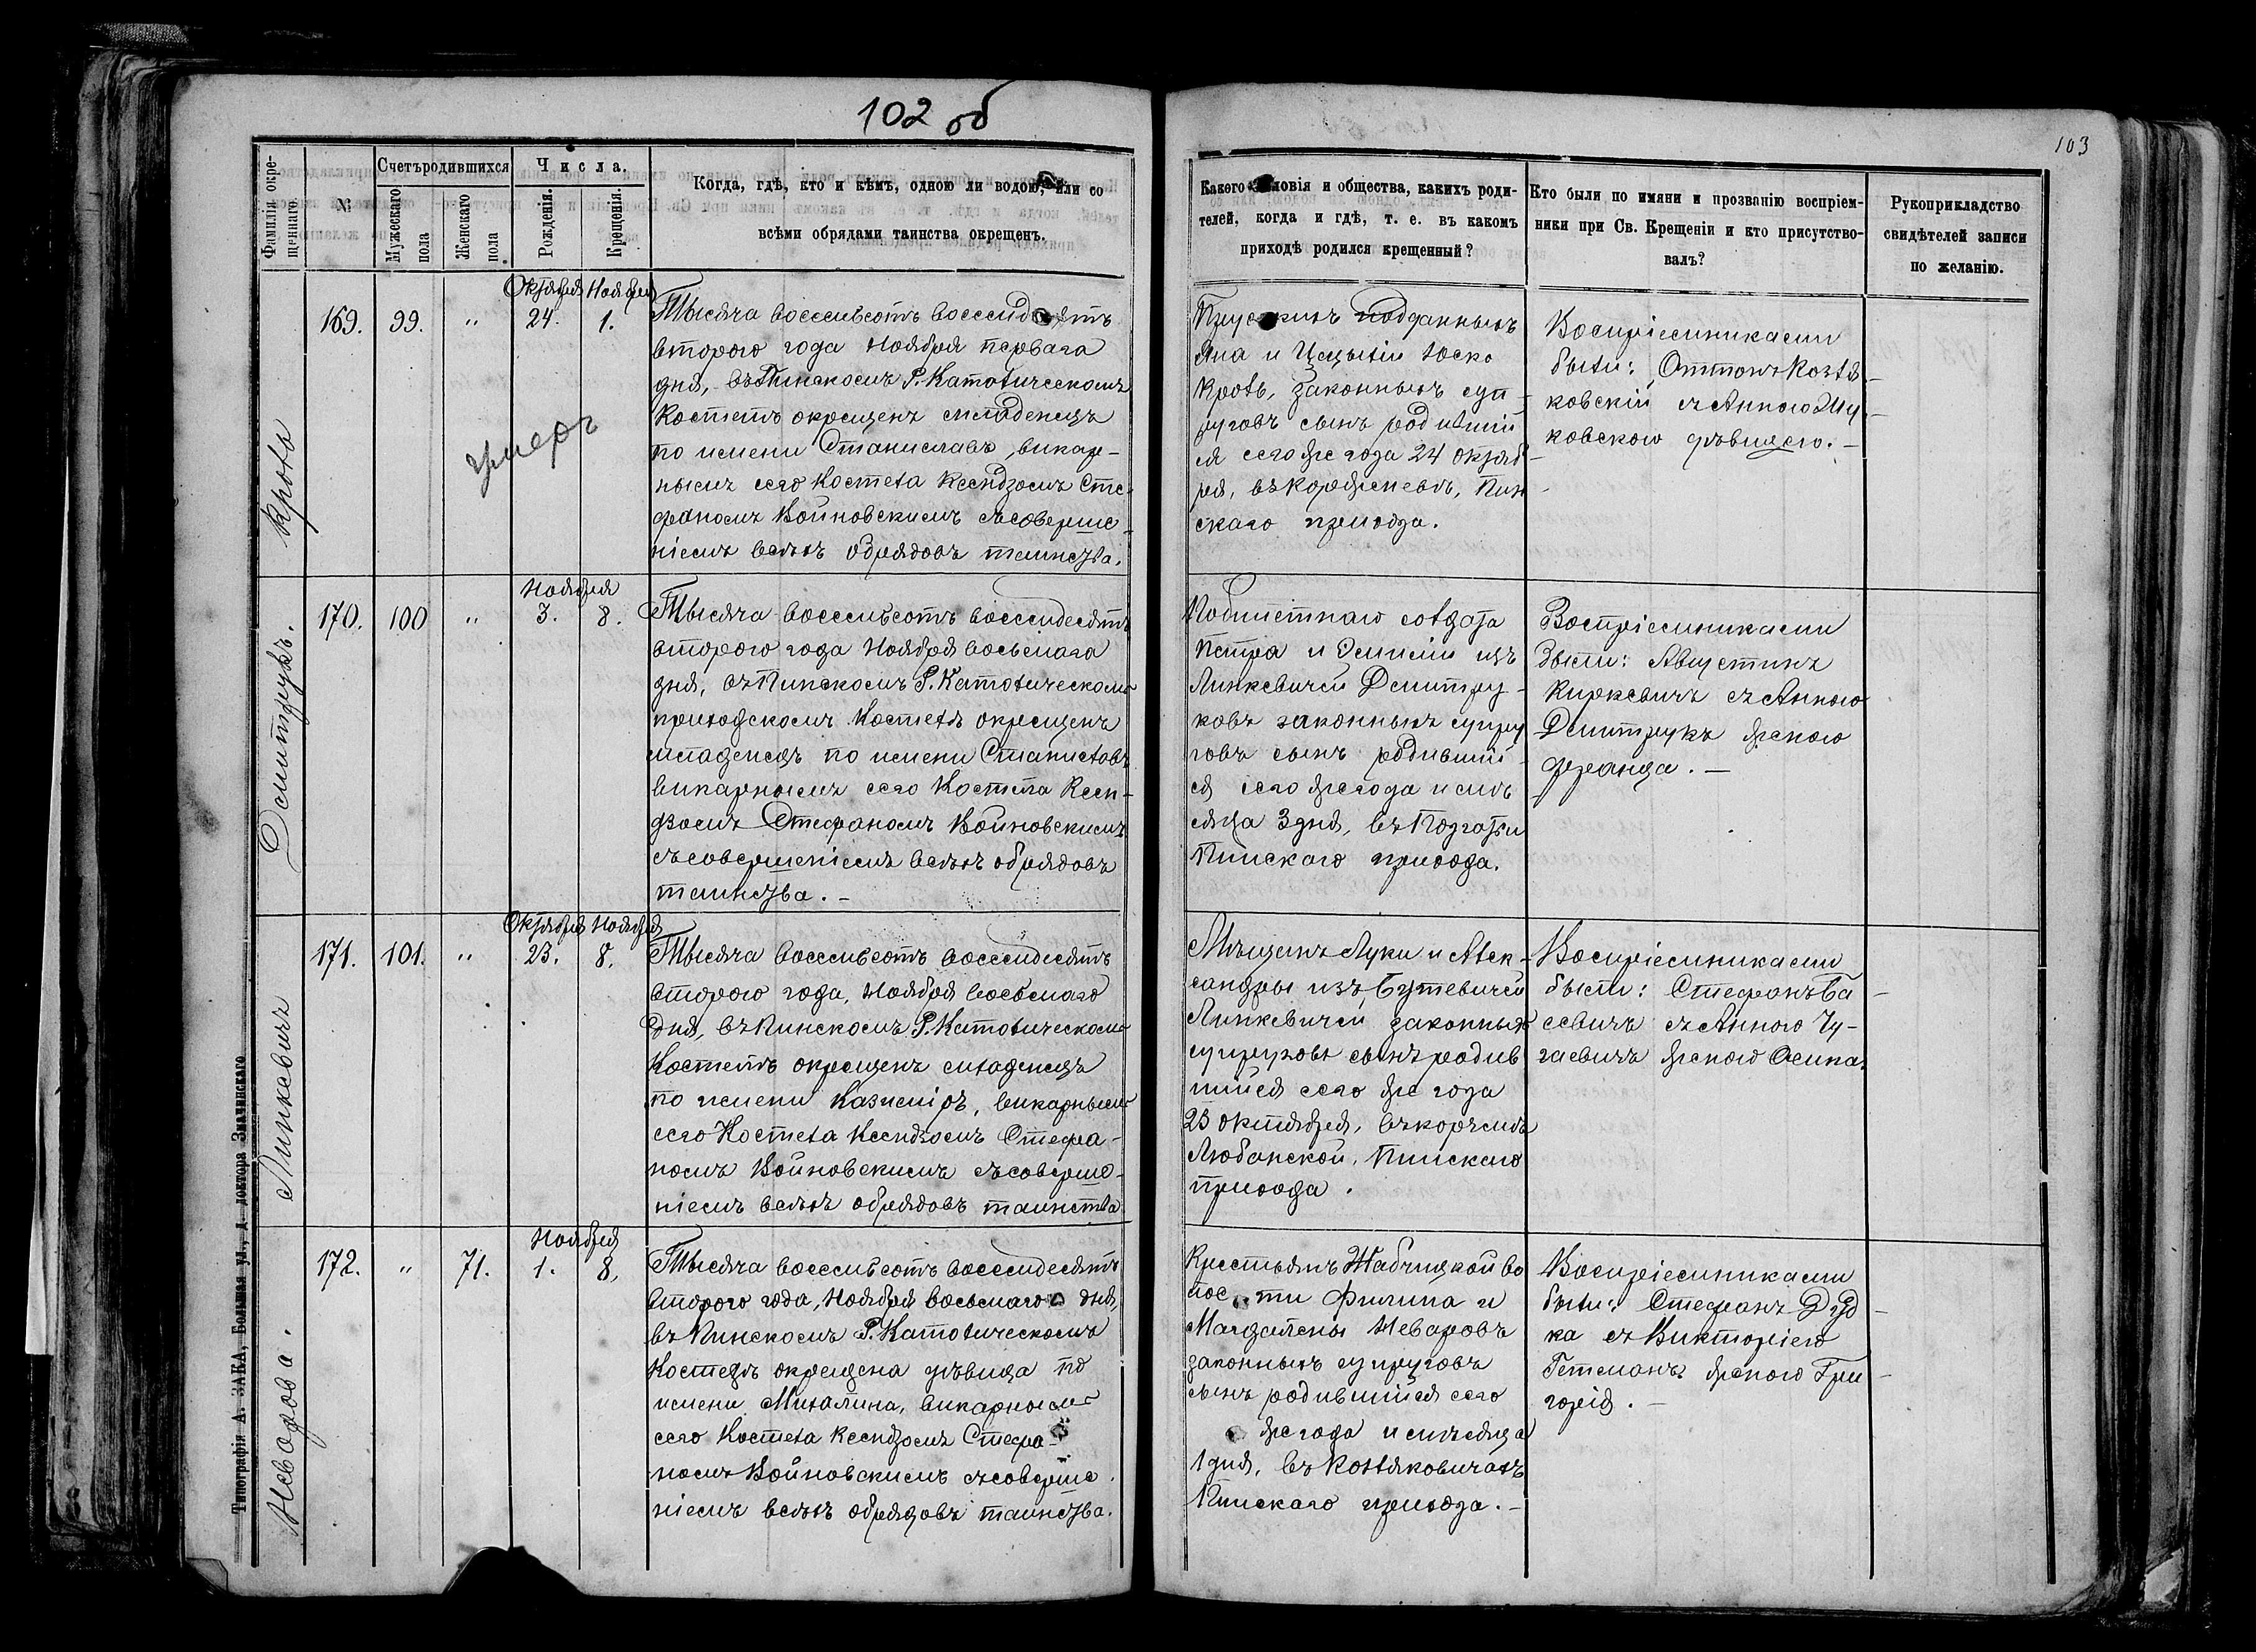 102 об
103
Фамилія окре-
щеннаго.
№
Счетъ родившихся
Мужескаго
пола
Женскаго
пола
Числа.
Рожденія.
Крещенія.
Когда, гдѣ, кто и кѣмъ, одною ли водою, или со
всѣми обрядами таинства окрещенъ.
Какого словія и общества, какихъ роди-
телей, когда и гдѣ, т. е. въ какомъ
приходѣ родился крещенный?
Кто были по имяни и прозванію воспріем-
ники при Св. Крещеніи и кто присутство-
валъ?
Рукоприкладство
свидѣтелей записи
по желанію.
Кроль
169.
99.
"
Октября
24.
Ноября
1.
умеръ
Тысяча восемьсотъ восемьдесятъ
втораго года Ноября перваго
дня, въ Пинскомъ Р. Католическомъ
Костелѣ окрещенъ младенецъ
по имени Станиславъ, викар-
нымъ сего Костела Ксендзомъ Сте-
фаномъ Войновскимъ съ соверше-
ніемъ всѣхъ обрядовъ таинства.
Прускихъ подданныхъ
Яна и
Кроль, законныхъ суп-
руговъ сынъ родившій-
ся сего же года 24 Октяб-
ря, въ Пин-
скаго прихода.
Воспріемниками
были: Оттонъ Козля-
ковскій съ Анною Жу-
ковскою дѣвицею.-
Дмитрукъ.
170.
100
"
Ноября
3.
8.
Тысяча восемьсотъ восемьдесятъ
втораго года Ноября восьмаго
дня, въ Пинскомъ Р. Католическомъ
приходскомъ Костелѣ окрещенъ
младенецъ по имени Станиславъ
викарнымъ сего Костела Ксен-
дзомъ Стефаномъ Войновскимъ
съ совершеніемъ всѣхъ обрядовъ
таинства.-
солдата
Петра и изъ
Линкевичей Дмитру-
ковъ законныхъ супру
говъ сынъ родившій-
ся сего же года и мѣ
сяца 3 дня, въ Подгатьи
Пинскаго прихода.
Воспріемниками
были: Августинъ
Киркевичъ съ Анною
Дмитрукъ женою
Франца.-
Линкевичъ
171.
101.
"
Октября
23.
Ноября
8.
Тысяча восемьсотъ восемьдесятъ
втораго года, Ноября восьмаго
дня, въ Пинскомъ Р. Католическомъ
Костелѣ окрещенъ младенецъ
по имени Казиміръ, викарнымъ
сего Костела Ксендзомъ Стефа-
номъ Войновскимъ съ соверше-
ніемъ всѣхъ обрядовъ таинства
Мѣщанъ Луки и Алек-
сандры изъ Бутевичей
Линкевичей, законныхъ
супруговъ сынъ родив
шійся сего же года
23 Октября, въ корчмѣ
Любанской, Пинскаго
прихода.
Воспріемниками
были: Стефанъ Ба-
севичъ съ Анною Чу-
гаевичъ женою Осипа.
Неварова.
172.
"
71.
Ноября
1.
8.
Тысяча восемьсотъ восемьдесятъ
втораго года, Ноября восьмаго дня,
въ Пинскомъ Р. Католическомъ
Костелѣ окрещена дѣвица по
имени Михалина, викарнымъ
сего Костела Ксендзомъ Стефа-
номъ Войновскимъ съ соверше
ніемъ всѣхъ обрядовъ таинства.
Крестьянъ Жабчицкой во
лос ти Филипа и
Магдалены Неваровъ
законныхъ супруговъ
сынъ родившійся сего
же года и мѣсяца
1 дня, въ Козляковичахъ
Пинскаго прихода.-
Воспріемниками
были: Стефанъ Дуд-
ка съ Викторіею
Гетманъ женою Гри-
горія.-
Типографія А. ЗАКА, Большая ул., д. доктора Значинскаго